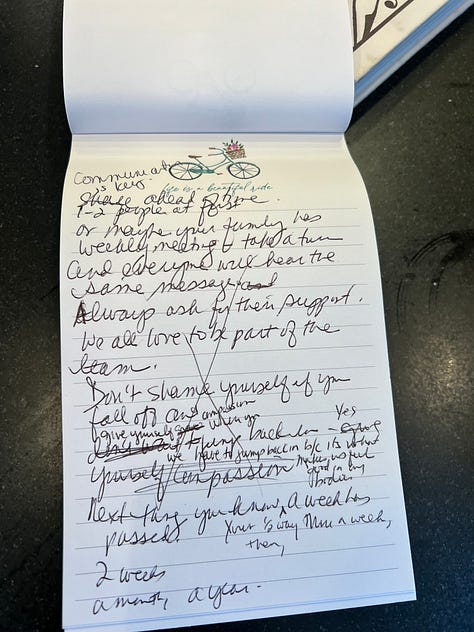 Communication
is key.
life is a beautiful ride
Share ahead of time.
1-2 people at first
or maybe your family has
weekly meeting & take a turn
and everyone will hear the
same message and
Always ask for their support.
We all love to be part of the
team.
Don't shame yourself if you
fall off and compassion
give yourself when you
jump back in - Yes
we have to jump back in b/c it's what
makes us feel
good in our
bodies
yourself compassion
Next thing you know, A week has
passed.
Your way thru a week,
then,
2 weeks
a month, a year.